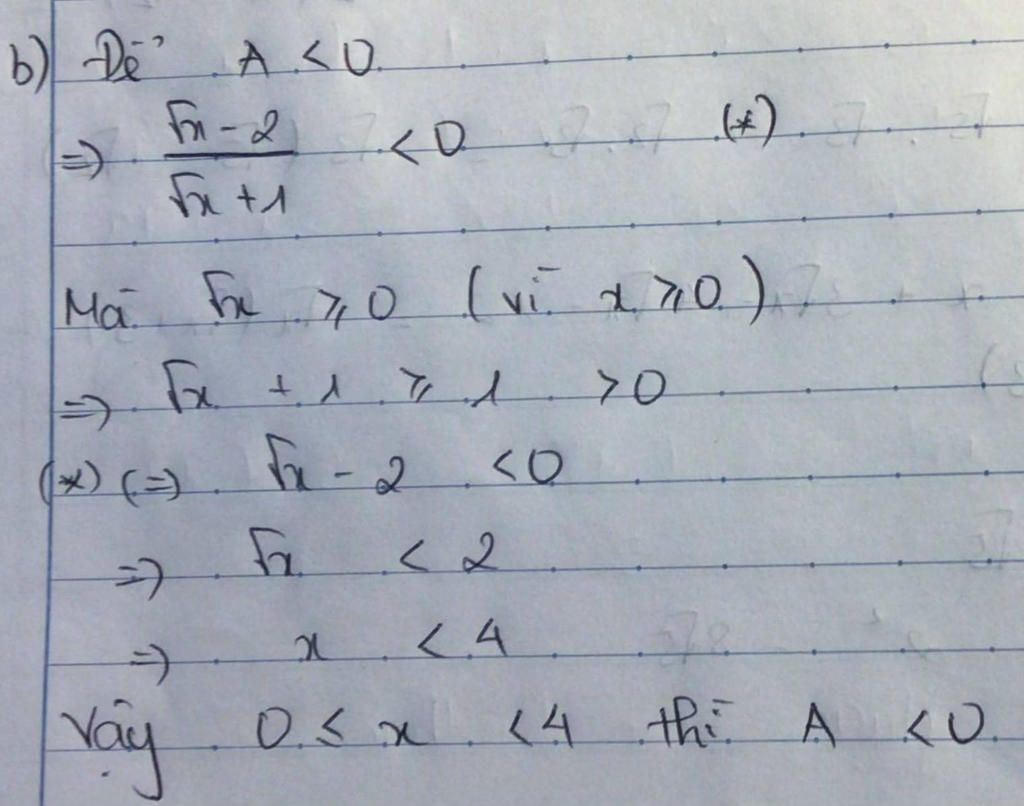 b) Để A < 0
=> √x - 2 / √x + 1 < 0 (*)
Mà √x ≥ 0 (vì x ≥ 0)
=> √x + 1 ≥ 1 > 0
(*) (=) √x - 2 < 0
=> √x < 2
=> x < 4
Vậy 0 ≤ x < 4 thì A < 0